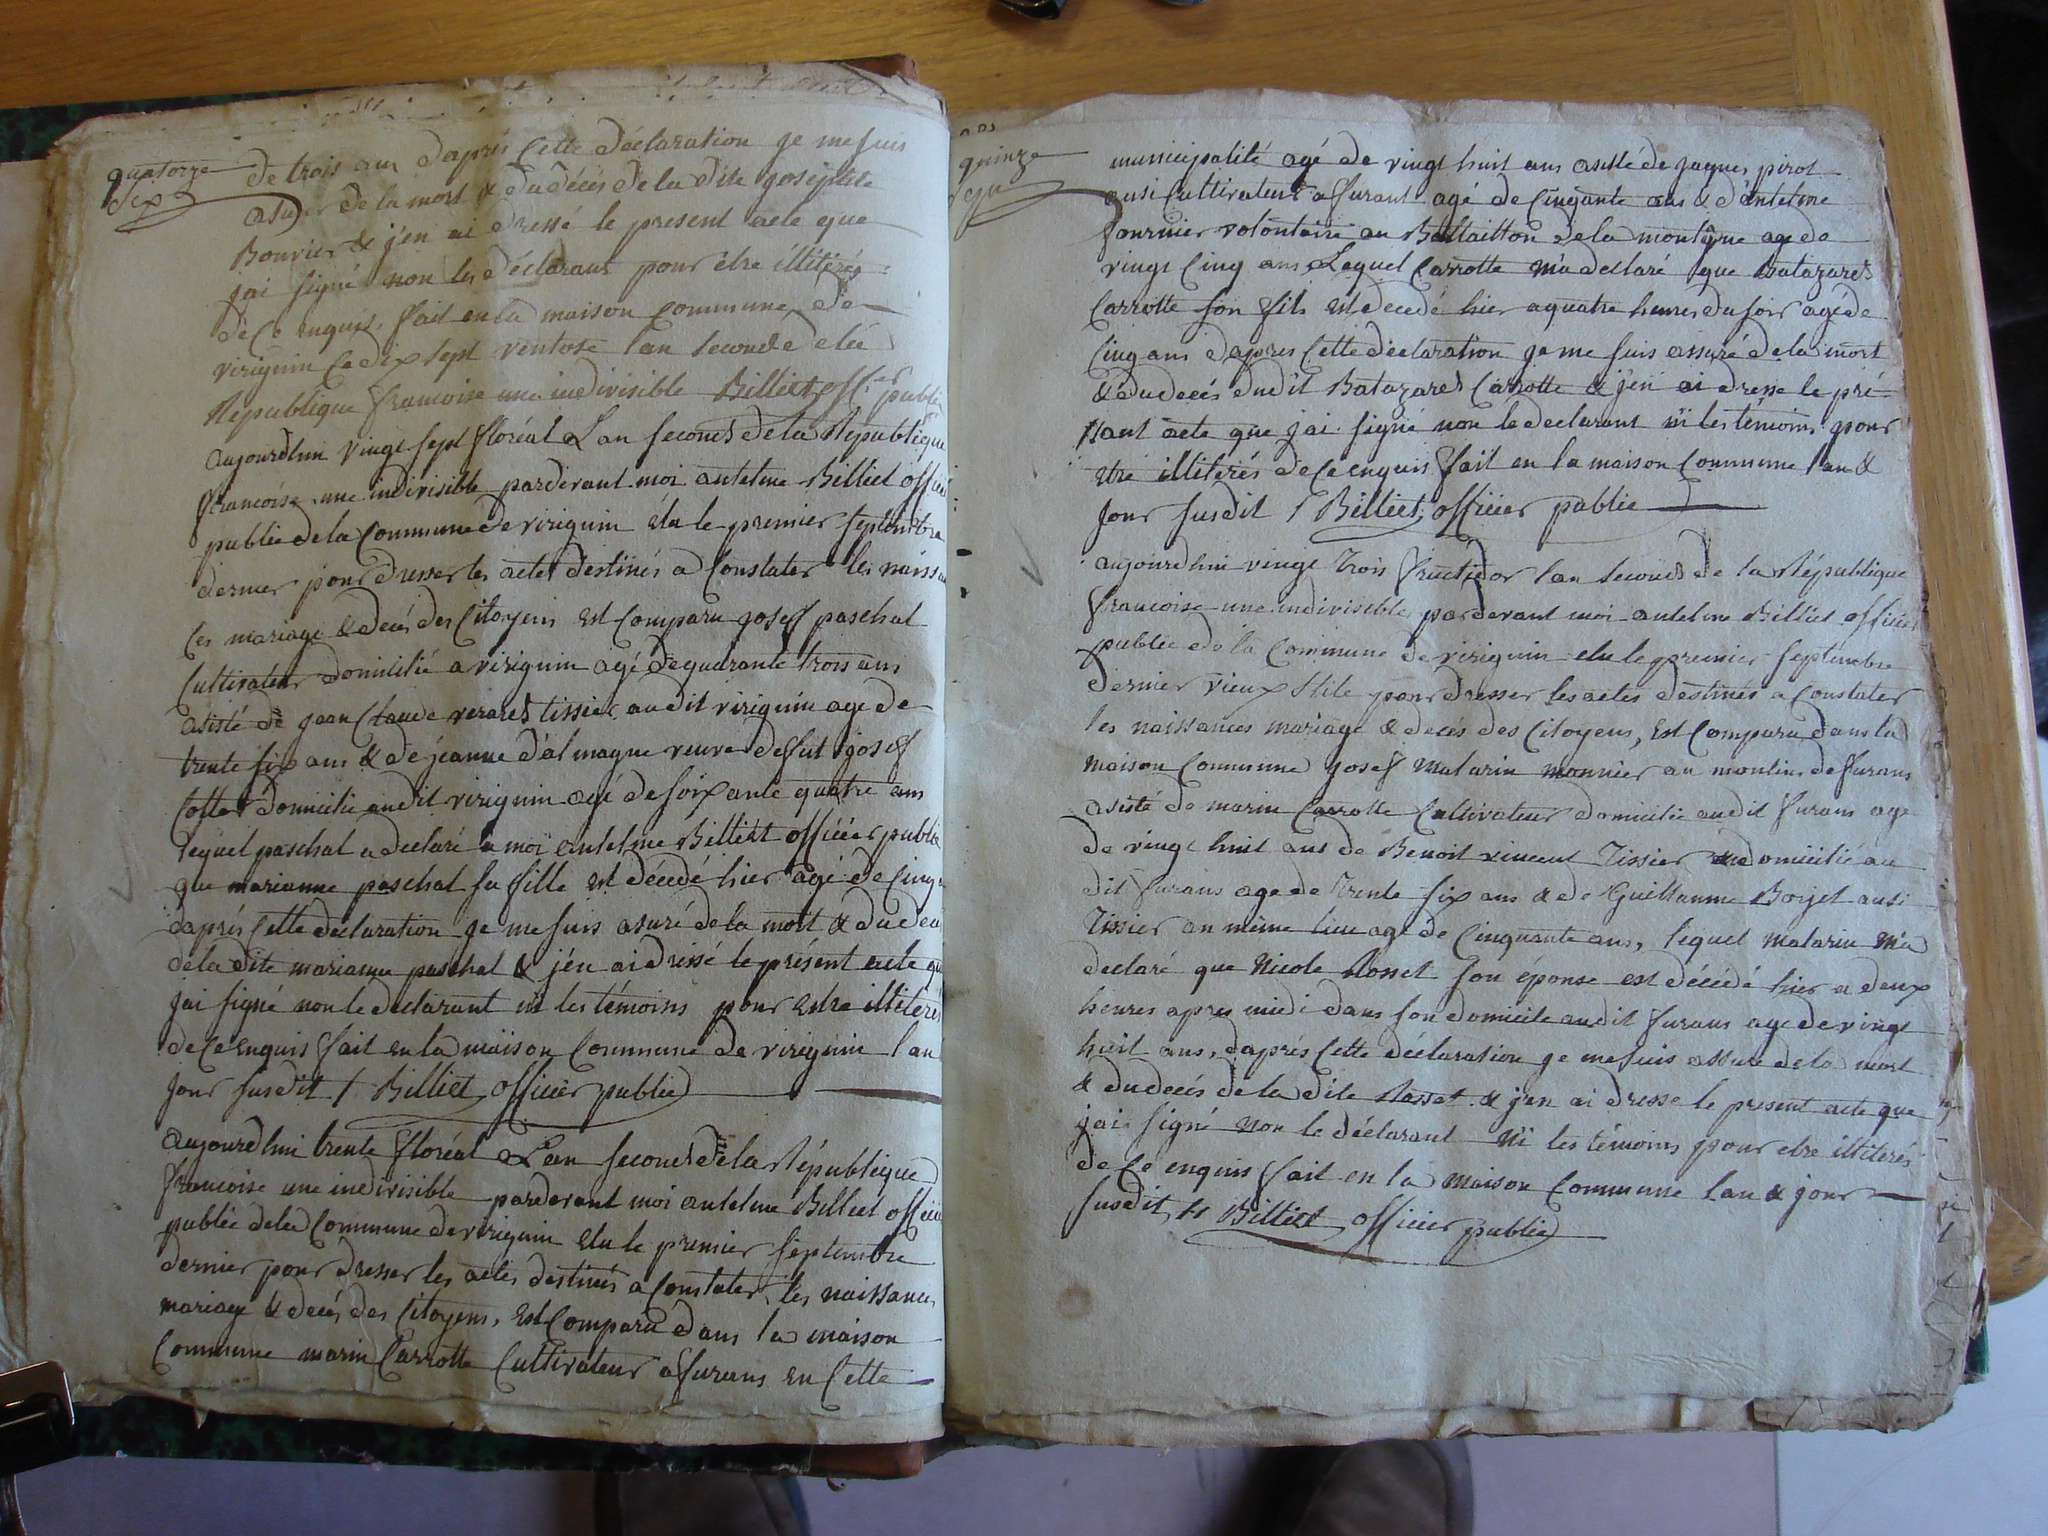 quatorze
de trois ans d'après cette déclaration je me suis
asuré de la mort & du décès de la dite josephte
Bouvier & j'en ai dressé le present acte que
j'ai signé non les déclarans pour être illitérés
de ce enquis. fait en la maison commune de
virignin ce dix sept ventose l'an second de la
République francoise une indivisible Billiet off.er public
aujourdhui vingt sept floréal L'an second de la République
francoise une indivisible pardevant moi antelme Billiet officier
public de la Commune de virignin élu le premier septembre
dernier pour dresser les actes destinés a Constater les naissan
ces mariage & décès des Citoyens est Comparu josef paschal
Cultivateur domicilié a virignin agé de quarante trois ans
asisté de jean Claude verard tissier audit virignin agé de
trente six ans & de jeanne d'almagne veuve de fut josef
Cottet domicilié audit virignin agé de soixante quatre ans
lequel paschal a declaré a moi antelme Billiet officier public
que marianne paschal sa fille est décédé hier agé de cinq
d'après cette declaration je me suis asuré de la mort & du décè
de la dite marianne paschal & j'en ai dressé le présent acte que
j'ai signé non le declarant ni les témoins pour estre illiterés
de ce enquis fait en la maison Commune de virignin l'an
jour susdit / Billiet officier public
aujourdhui trente floréal L'an second de la République
francoise une indivisible pardevant moi antelme Billiet officier
public de la Commune de virignin élu le premier septembre
dernier pour dresser les actes destinés a Constater les naissances
mariage & decès des Citoyens, est Comparu dans la maison
Commune marin Carrotte Cultivateur a furans en cette
quinze
municipalité agé de vingt huit ans asisté de jaques pirot
ausi Cultivateur a furans agé de Cinquante ans & d'antelme
fournier volontaire au Battaillon de la montagne age de
vingt Cinq ans Lequel Carrotte m'a declaré que Batazard
Carrotte son fils est decedé hier a quatre heures du soir agé de
Cinq ans d'apres cette declaration je me suis assuré de la mort
& du decès dudit Batazard Carrotte & j'en ai dresse le pré
sant acte que j'ai signé non le declarant ni les témoins pour
etre illiterés de ce enquis fait en la maison Commune l'an &
jour susdit / Billiet officier public
aujourdhui vingt trois fructidor l'an second de la République
francoise une indivisible pardevant moi antelme Billiet officier
public de la Commune de virignin elu le premier septembre
dernier vieux stile pour dresser les actes destinés a Constater
les naissances mariage & decès des Citoyens, est Comparu dans la
maison Commune josef matarin monnier au moulin de furans
asisté de marin Carrotte Cultivateur domicilie audit furans age
de vingt huit ans de Benoit vincent Tissier domicilié au
dit furans age de trente six ans & de Guillaume Borjet ausi
Tissier au même lieu agé de Cinquante ans, lequel matarin m'a
declaré que Nicole Rosset son épouse est décédé hier a deux
heures apres midi dans son domicile audit furans age de vingt
huit ans, d'après cette déclaration je me suis assuré de la mort
& du decès de la dite Rosset & j'en ai dresse le present acte que
j'ai signé non le déclarant ni les témoins pour etre illiterés
de ce enquis fait en la maison Commune l'an & jour
susdit Billiet officier public